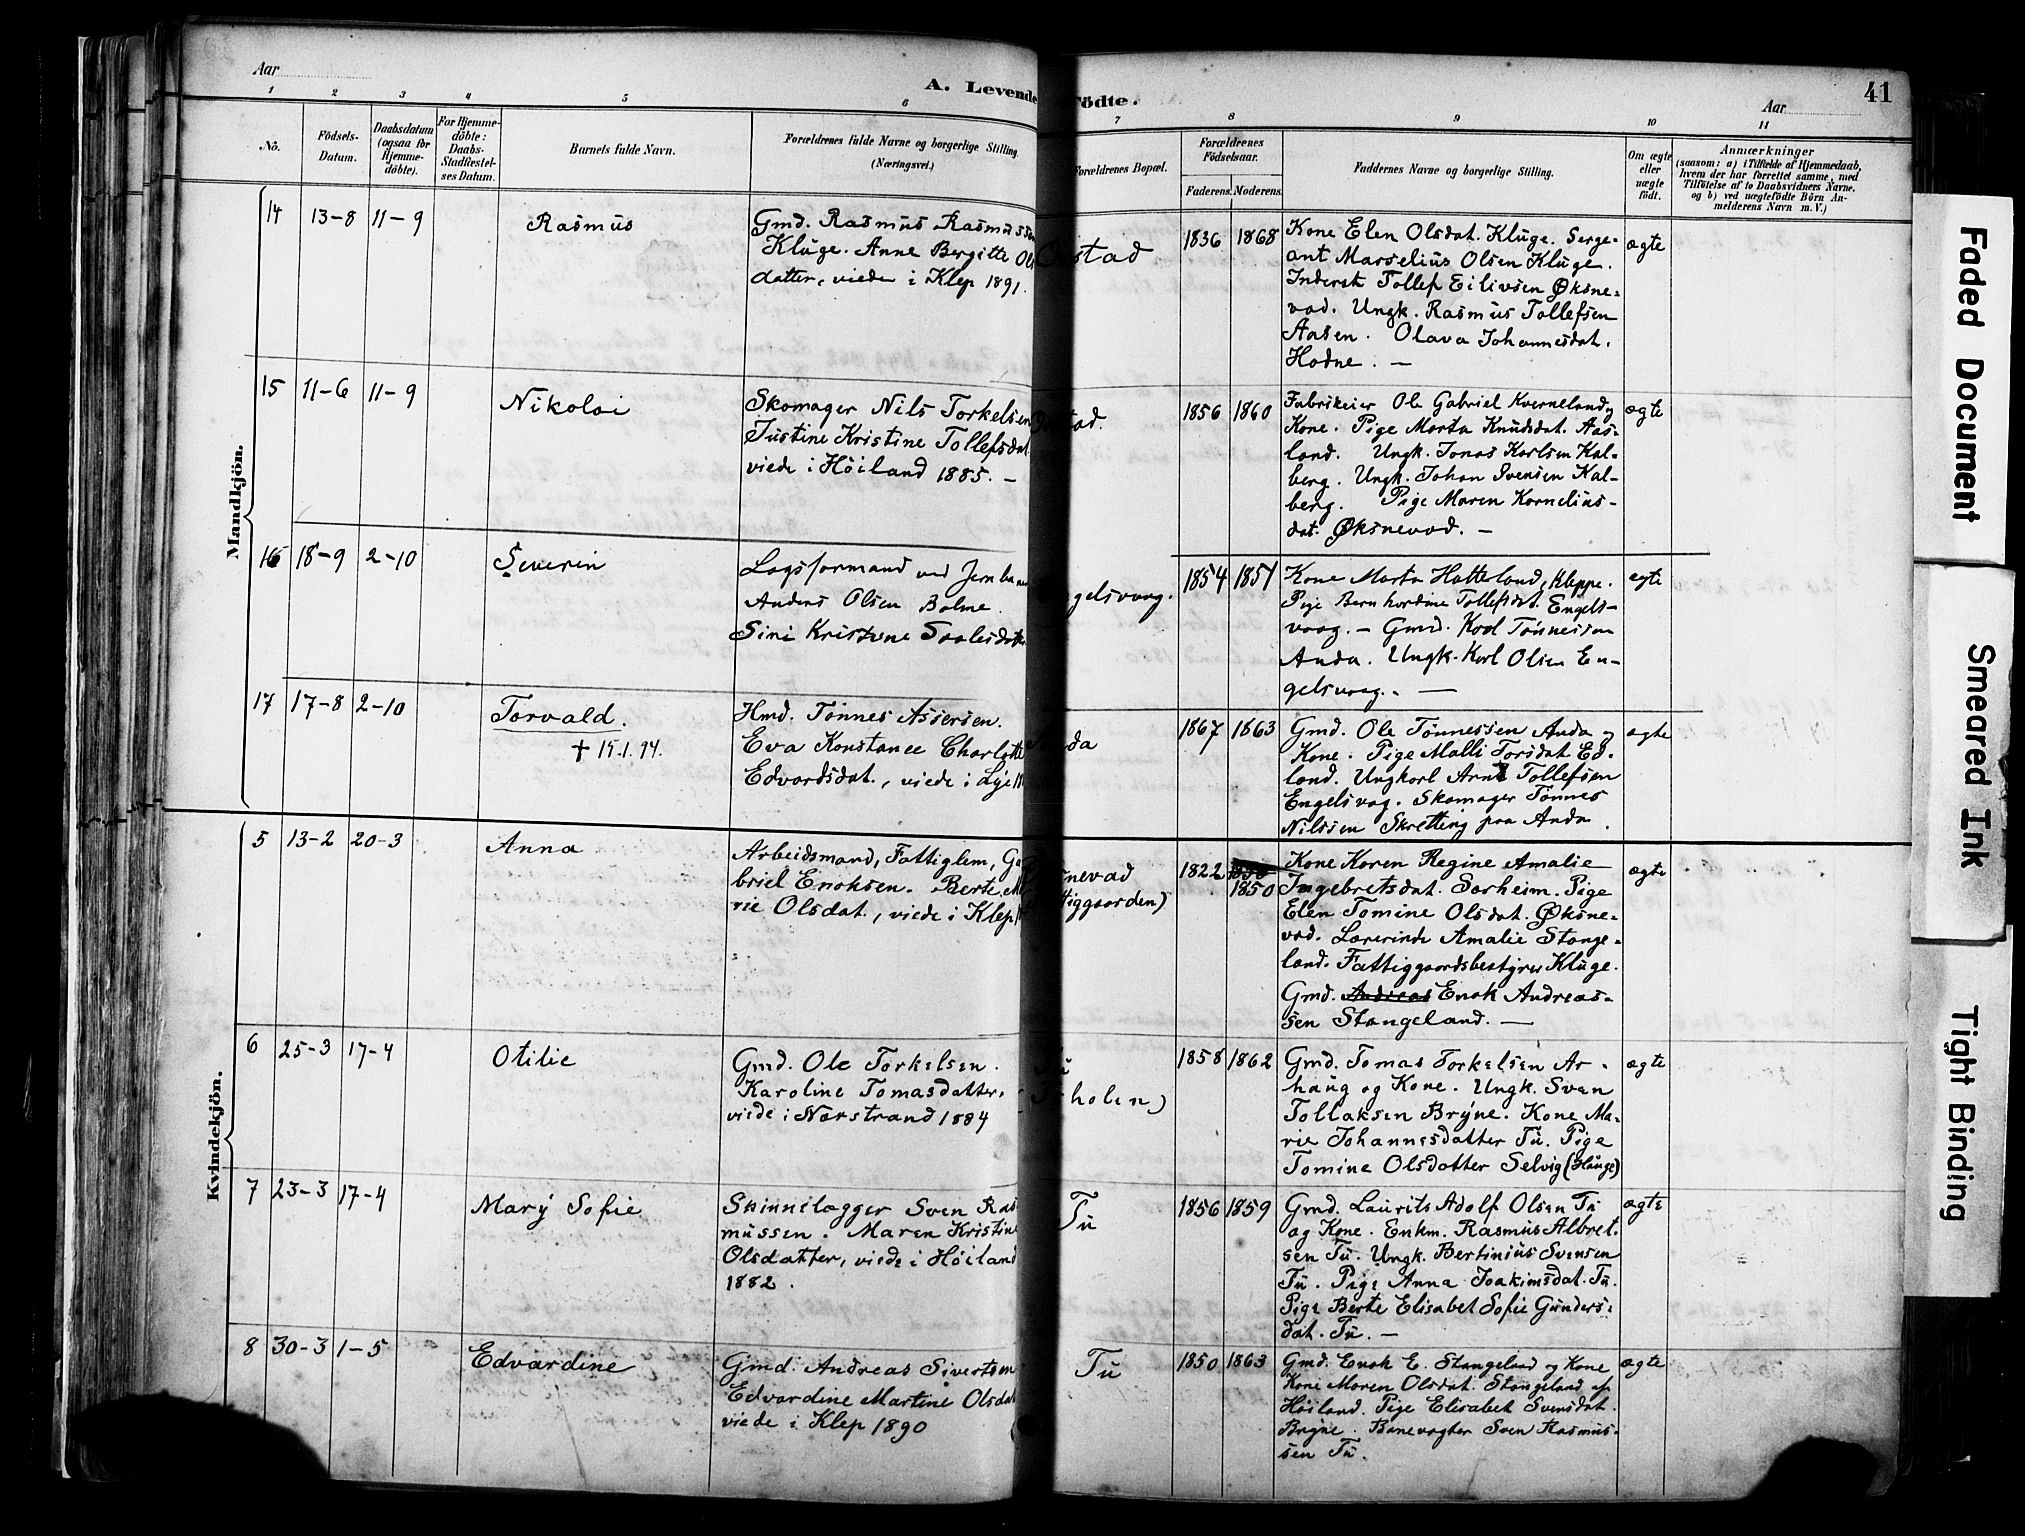 Aar
A. Levende Födte.
Aar
41
1 2 3 4 5 6 7 8 9 10 11
No.
Födsels-
Datum.
Daabsdatum
(ogsaa for
Hjemme-
döbte).
For Hjemme-
döbte:
Daabs-
Stadfæstel-
ses Datum.
Barnets fulde Navn.
Forældrenes fulde Navne og borgerlige Stilling
(Næringsvei.)
Forældrenes Bopæl.
Forældrenes
Födselsaar.
Faderens. Moderens.
Faddernes Navne og borgerlige Stilling.
Om ægte
eller
uægte
födt.
Anmærkninger
(saasom: a) i Tilfælde af Hjemmedaab,
hvem der har forrettet samme, med
Tilföielse af to Daabsvidners Navne,
og b) ved uægtefödte Börn An-
melderens Navn m. V.)
Mandkjön.
14 13-8 11-9 Rasmus
Gmd. Rasmus Rasmussen
Kluge. Anne Bergitte Ols
datter, viede i Klep 1891.
1836 1868
Kone Elen Olsdat. Kluge. Serge-
ant Marselius Olsen Kluge.
Inderst Tollef Eilivsen Øksne-
vad. Ungk. Rasmus Tollefsen
Aasen. Olava Johannesdat.
Hodne. —
ægte
15 11-6 11-9 Nikolai
Skomager Nils Torkelsen
Justine Kristine Tollefsdat.
viede i Høiland 1885. —
1856 1860
Fabrikeier Ole Gabriel Kverneland og
Kone. Pige Marta Knudsdat. Aas-
land. Ungk. Jonas Karlsen Kal-
berg. Ungk. Johan Svensen Kal-
berg. Pige Maren Kornelius-
dat. Øksnevad. —
ægte
16 18-9 2-10 Severin
Lagsformand ved Jernbanen
Anders Olsen Bolme.
Sini Kristine
gelsvaag.
1854 1851
Kone Marta Hatteland, Kleppe.
Pige Bernhardine Tollefsdat. Engels-
vaag. — Gmd. Karl Tønnessen
Anda. Ungk. Karl Olsen En-
gelsvaag. —
ægte
17 17-8 2-10 Torvald.
† 15.1.94.
Hmd. Tønnes Assersen.
Eva Konstance Charlotte
Edvardsdat., viede i Lye
da
1867 1863
Gmd. Ole Tønnessen Anda og
Kone. Pige Malli Torsdat. Ed-
land. Ungkarl Arnt Tollefsen
Engelsvag. Skomager Tønnes
Nilssen Skretting paa Anda.
ægte
Kvindekjön.
5 13-2 20-3 Anna
Arbeidsmand, Fattiglem, Ga
briel Enoksen. Berte Ma
rie Olsdat., viede i Klep
nevad
tiggaarden)
1822 1850
Kone Karen Regine Amalie
Ingebretsdat. Sørheim. Pige
Elen Tomine Olsdat. Øksne-
vad. Lærerinde Amalie Stange-
land. Fattiggaardsbestyrer Kluge.
Gmd. Andreas Enok Andreas-
sen Stangeland. —
ægte
6 25-3 17-4 Otilie
Gmd. Ole Torkelsen.
Karoline Tomasdatter,
viede i Nærstrand 1884
Tu
holen)
1858 1862
Gmd. Tomas Torkelsen Ar-
haug og Kone. Ungk. Sven
Tollaksen Bryne. Kone Ma-
rie Johannesdatter Tu. Pige
Tomine Olsdatter Selvig (Hauge)
ægte
7 23-3 17-4 Mary Sofie
Skinnelægger Sven Ras
mussen. Maren Kristine
Olsdatter, viede i Høiland
1882.
Tu
1856 1859
Gmd. Laurits Adolf Olsen Tu
og Kone. Enkm. Rasmus Albret-
sen Tu. Ungk. Bertinius Svensen
Tu. Pige Anna Joakimsdat. Tu.
Pige Berte Elisabet Sofie Gunders-
dat. Tu. —
ægte
8 30-3 1-5 Edvardine
Gmd. Andreas Sivertsen
Edvardine Martine Olsdat
viede i Klep 1890
Tu
1850 1863
Gmd. Enok E. Stangeland og Kone
Kone Maren Olsdat. Stangeland af
Høiland. Pige Elisabet Svensdat.
Bryne. Banevogter Sven Rasmus-
sen Tu.
ægte
Faded Document
Smeared Ink
Tight Binding